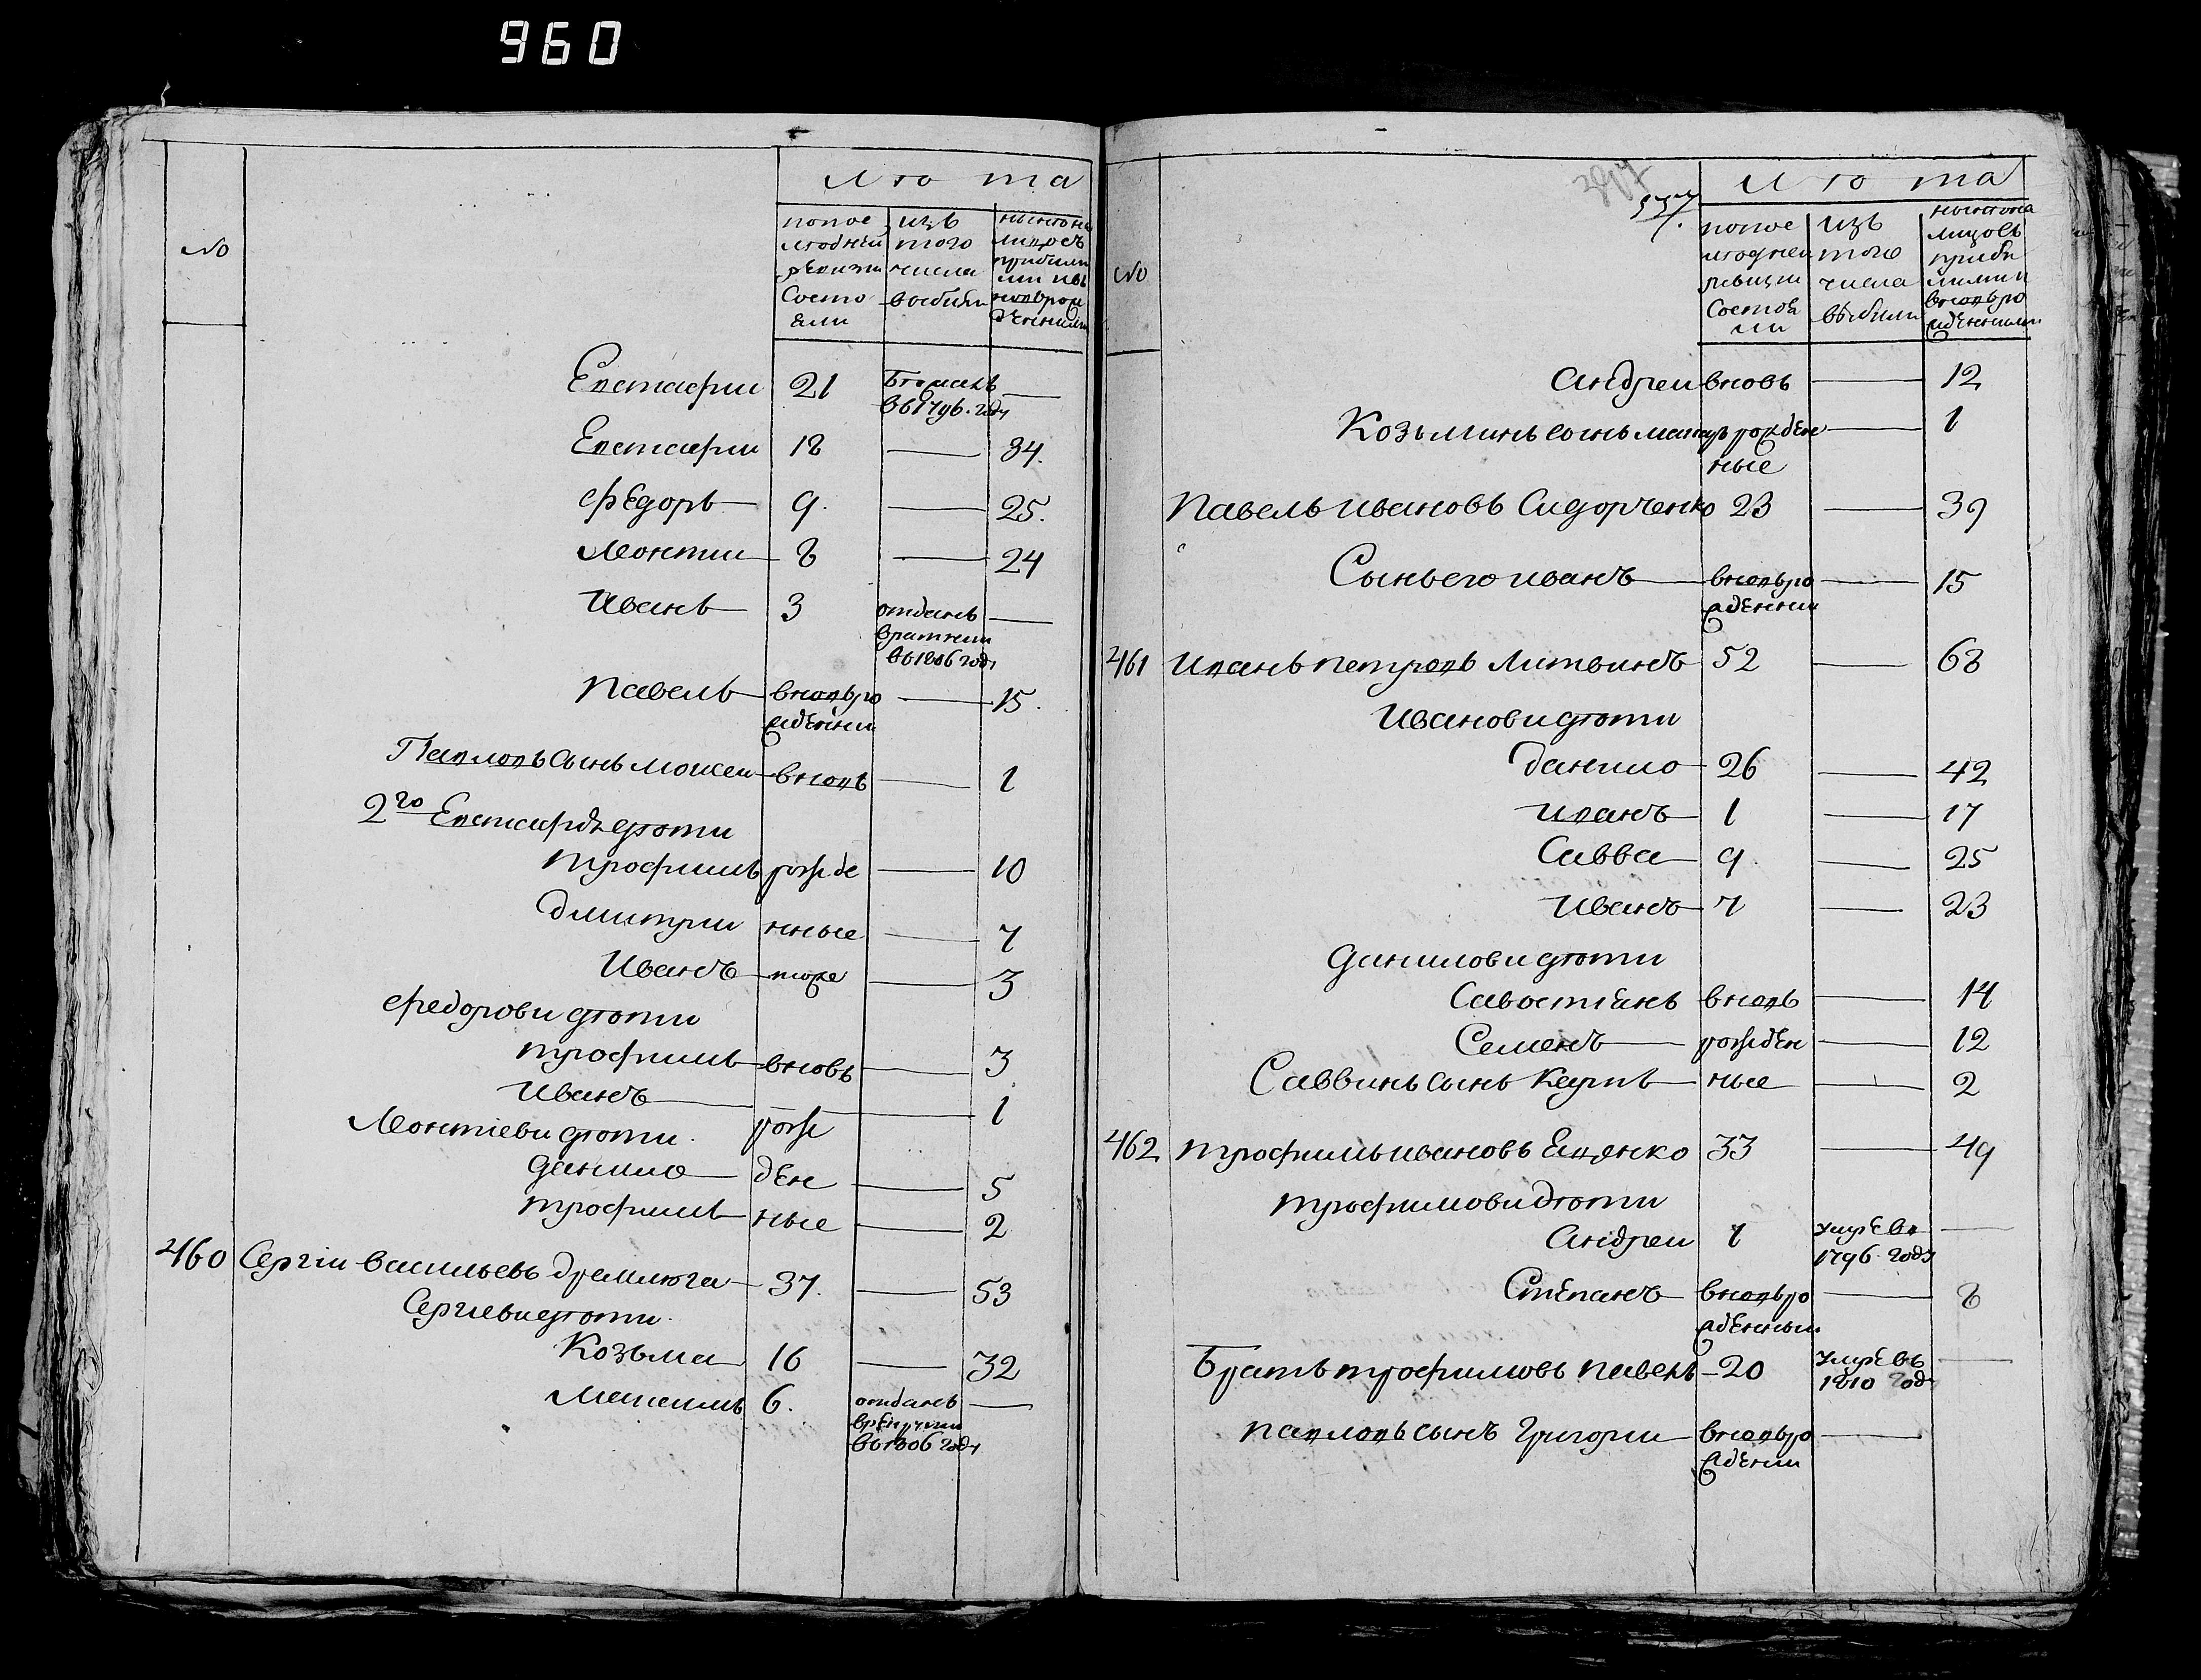 960
Лѣта
№
по пос
лѣдней
ревизіи
Состо
яли
изъ
того
числа
выбыли
Евстафіи 21 бѣжалъ —
въ 1796. году
Евстафіи 18 — 34.
Федоръ 9. — 25.
Леонтіи 8 — 24
Иванъ 3 отданъ —
вратники
въ 1806 году
Павелъ вновьро — 15.
жденни
Павловъ сынъ Моисеи вновь — 1
2го Евстафія дѣти
трофимъ рожде — 10
дмитріи нные — 7
Иванъ тоже — 3
Федорови дѣти
трофимъ вновь — 3
Иванъ — 1
Леонтіеви дѣти. рож
данило ден — 5
трофимъ ные — 2
460 Сергіи васильевъ дремлюга 37. — 53
Сергіеви дѣти.
Козьма 16 — 32
Максимъ 6. отданъ —
врекрути
въ 1806 году
537.
Лѣта
№
по пос
лѣднеи
ревизіи
Состоя
ли
изъ
того
числа
выбыли
Андреи вновь — 12
Козьминъ сынъ рожден — 1
ные
Павелъ ивановъ Сидорченко 23 — 39
Сынъ его иванъ вновьро — 15
жденни
461 Иванъ петровъ Литвинъ 52 — 68
Иванови дѣти
данило 26 — 42
иванъ 1 — 17
Савва 9. — 25
Иванъ 7 — 23
данилови дѣти
Савостіанъ вновь — 14
Семенъ рожден — 12
Саввинъ сынъ Карпъ ные — 2
462 трофимъ ивановъ Ещенко 33 — 49
трофимови дѣти
Андреи 1 умре въ —
1796. году
Степанъ вновьро — 8
жденныи
Братъ трофимовъ павелъ 20 умре въ —
1810 году
павловъ сынъ Григоріи вновьро —
жденни